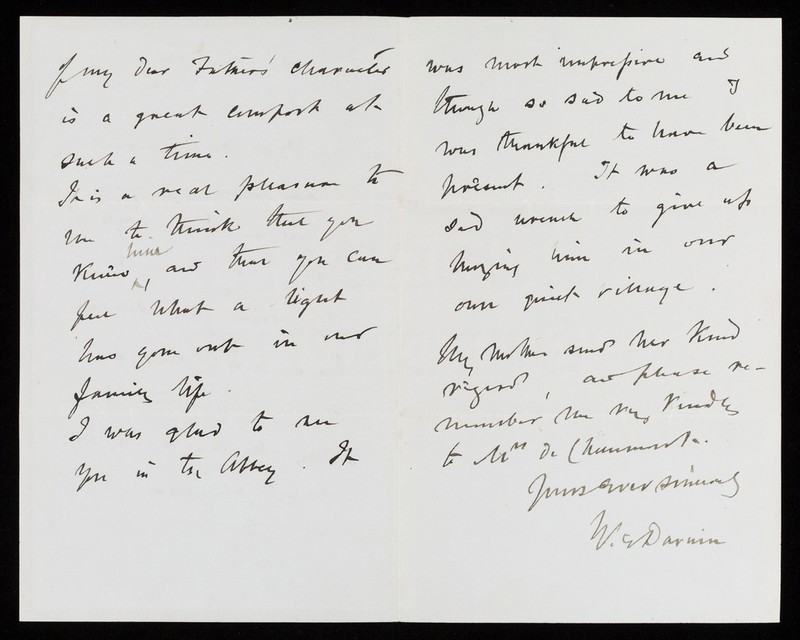 of my dear Father's character
is a great comfort at
such a time.
It is a real pleasure to
me to think that you
knew him, and that you can
feel what a light
has gone out in our
family life.
I was glad to see
you in the Abbey. It
was most impressive and
though so sad to me I
was thankful to have been
present. It was a
sad wrench to give up
burying him in our
own quiet village.
My Mother sends her kind
regards, and please re-
member me very kindly
to Mrs De Chaumont.
Yours ever sincerely
W. E Darwin